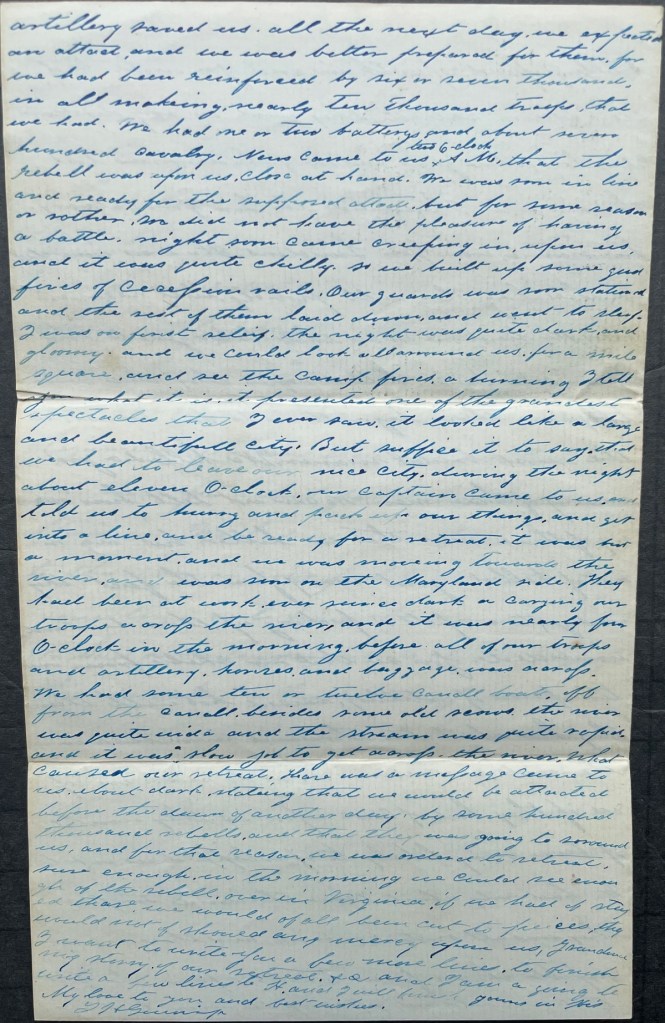 artillery saved us. all the next day, we expected
an attact, and we was better prepared for them, for
we had been reinforced by six or seven thousand,
in all making, nearly ten thousand troops, that
we had. We had one or two battery, and about seven
hundred cavalry. News came to us, two O-clock A.M., that the
rebell was upon us, close at hand. We was soon in line
and ready for the supposed attact. but for some reason
or rother, we did not have the pleasure of having
a battle. night soon came creeping in, upon us,
and it was quite chilly. so we built up some good
fires of Cecession rails. Our guards was soon stationed
and the rest of them laid down, and went to sleep.
I was on first relief. the night was quite dark, and
gloomy. and we could look all around us. for a mile
square, and see the camp fires, a burning I tell
you what it is, it presented one of the grandest
spectacles that I ever saw, it looked like a large
and beautifull city. But suffice it to say, that
we had to leave our nice city, during the night
about eleven O-clock, our captain came to us, and
told us to hurry and pack up our things, and get
into a line, and be ready for a retreat. it was but
a moment, and we was moving towards the
river, and was soon on the Maryland side. They
had been at work, ever since dark a carying our
troops across the river, and it was nearly four
O-clock in the morning, before all of our troops
and artillery, horses, and baggage, was across.
We had some ten or twelve canall boats, off
from the canall, besides some old scows, the river
was quite wide and the stream was quite rapid
and it was slow job to get across the river. What
caused our retreat. Thare was a message came to
us, about dark, stating that we would be attacted
before the dawn of another day, by some hundred
thousand rebells, and that they was going to soround
us, and for that reason, we was ordered to retreat.
sure enough, in the morning we could see enou
gh of the rebell, over in Virginia, if we had of stay
ed thare, we would of all been cut to pieces, they
would not of should any mercy upon us,
I want to write you a few more lines, to finish
my story of our retreat. &c and I am a going to
write a few lines to H. and yours in
My love to you and best wishes.